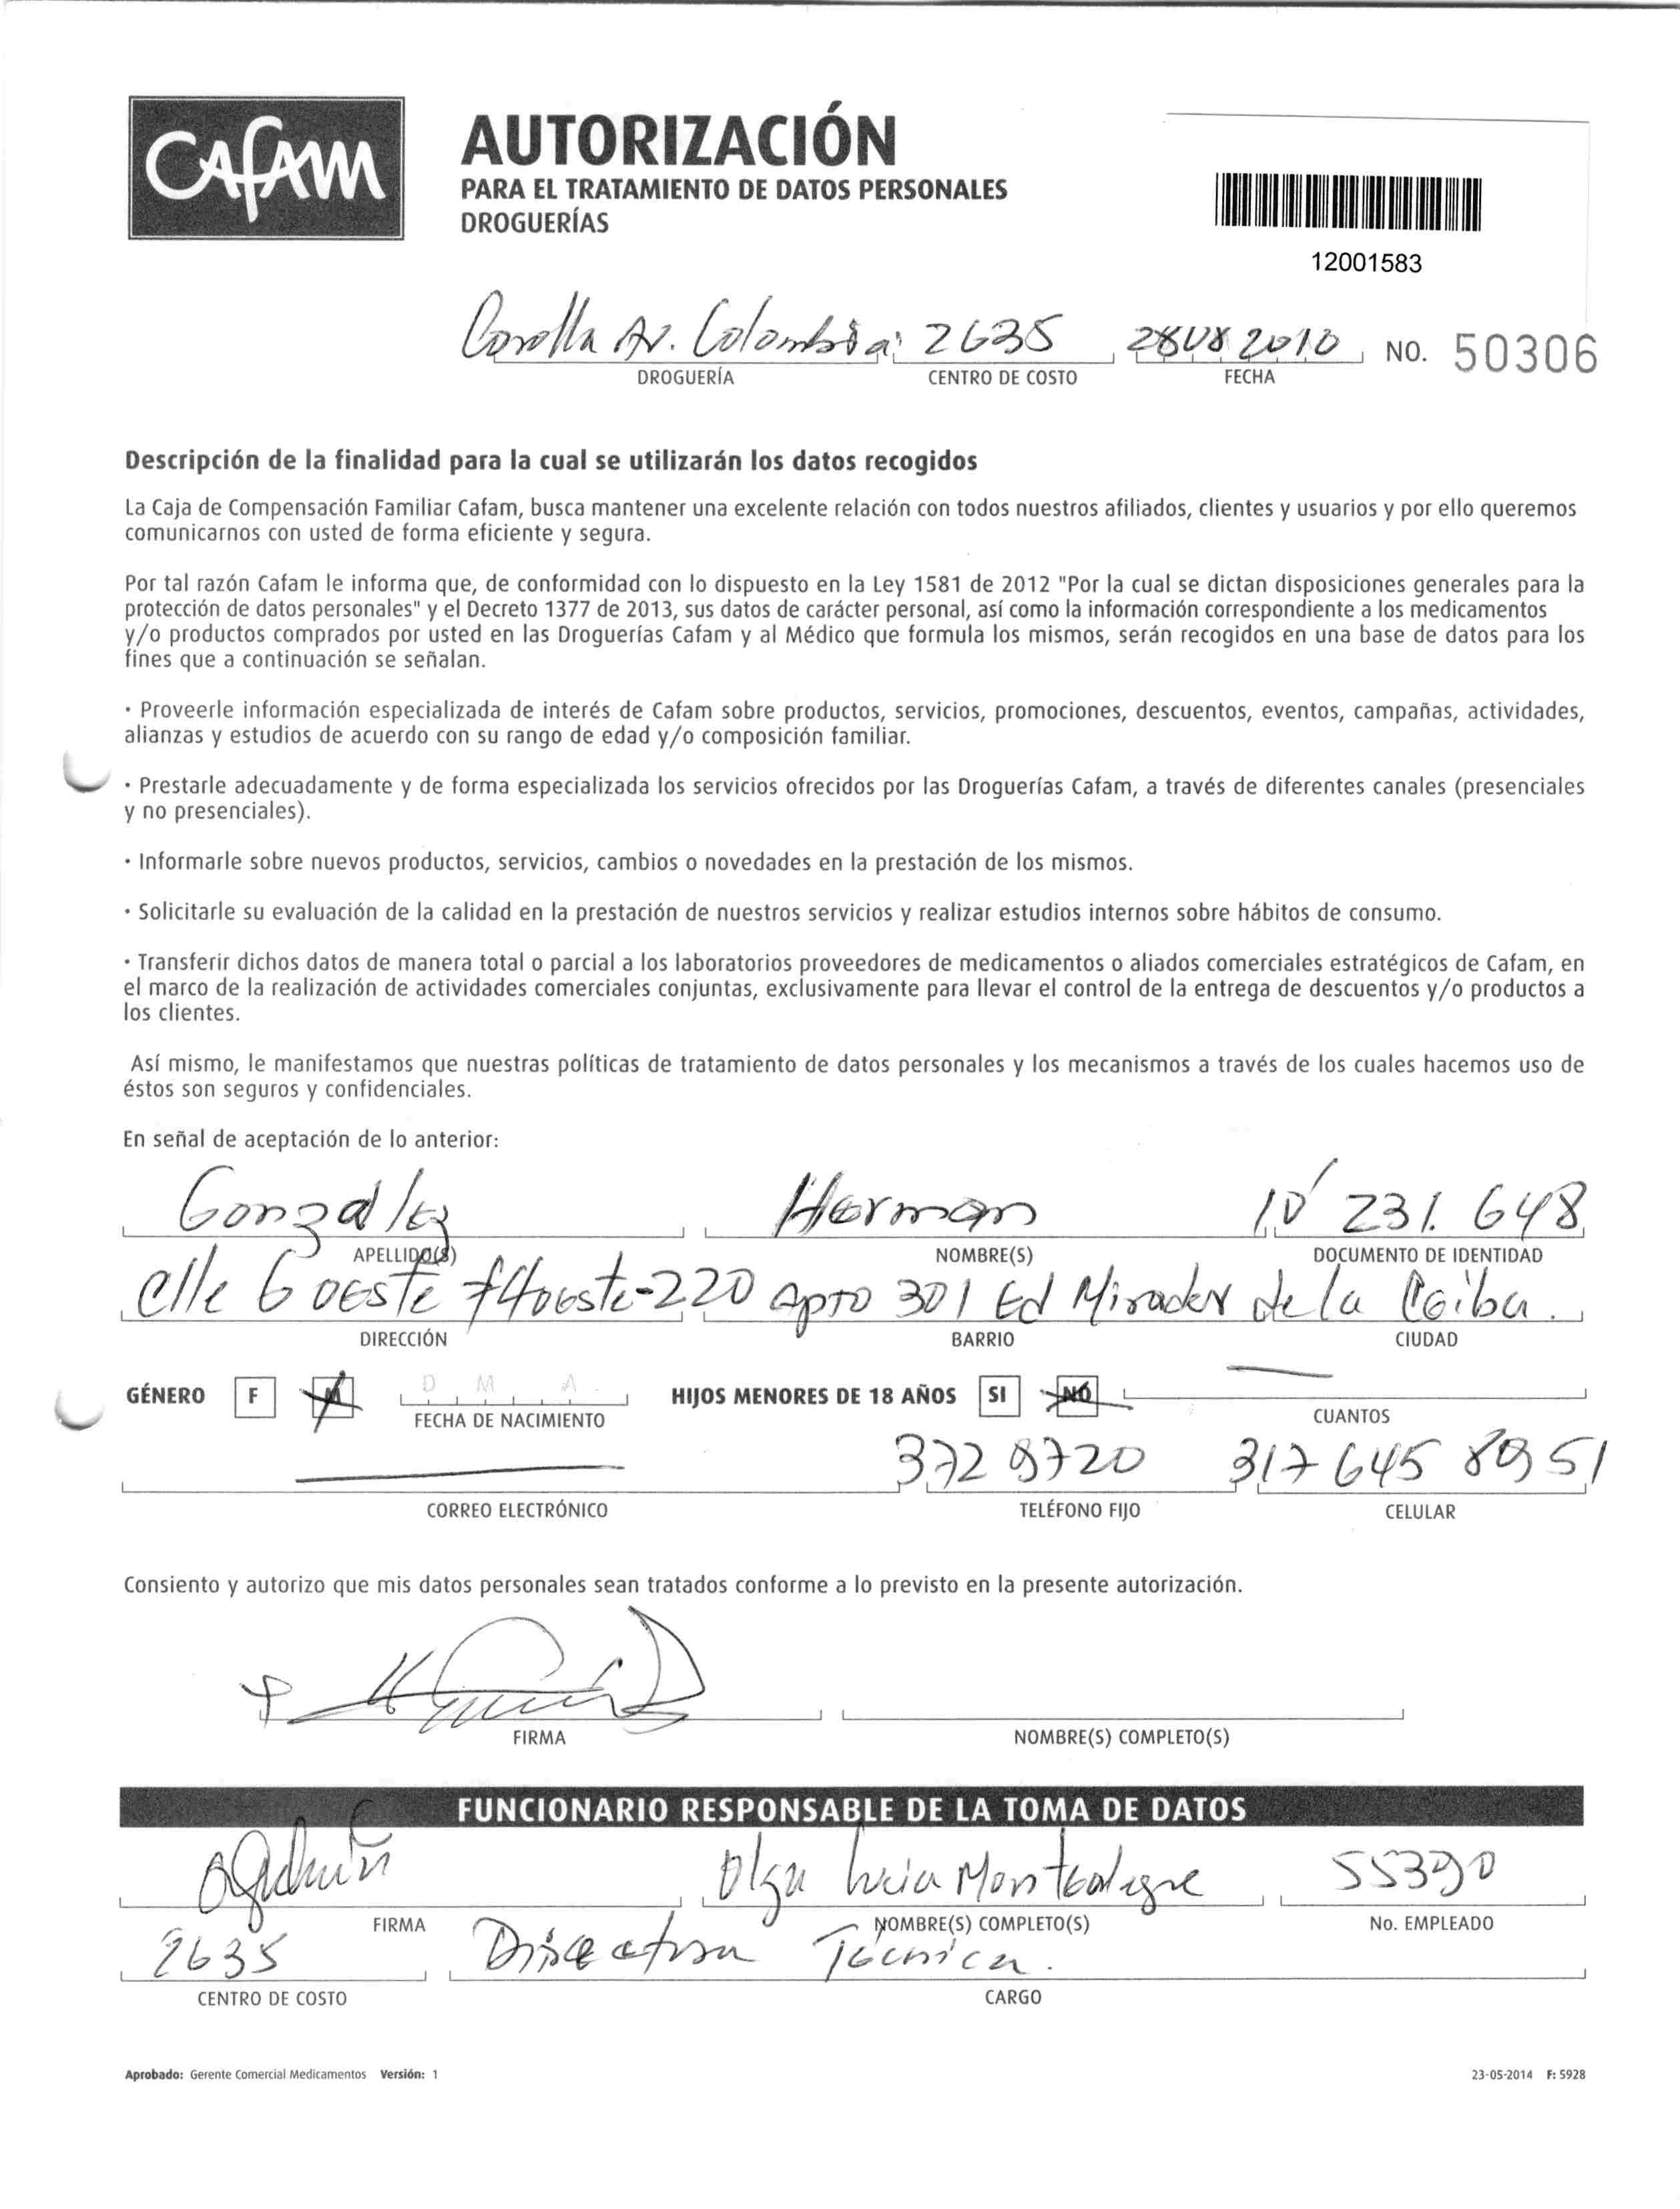 Cafam
AUTORIZACIÓN
PARA EL TRATAMIENTO DE DATOS PERSONALES
DROGUERÍAS
12001583
Av. Colombia 2635 2010 NO. 50306
DROGUERÍA CENTRO DE COSTO FECHA
Descripción de la finalidad para la cual se utilizarán los datos recogidos
La Caja de Compensación Familiar Cafam, busca mantener una excelente relación con todos nuestros afiliados, clientes y usuarios y por ello queremos
comunicarnos con usted de forma eficiente y segura.
Por tal razón Cafam le informa que, de conformidad con lo dispuesto en la Ley 1581 de 2012 "Por la cual se dictan disposiciones generales para la
protección de datos personales" y el Decreto 1377 de 2013, sus datos de carácter personal, así como la información correspondiente a los medicamentos
y/o productos comprados por usted en las Droguerías Cafam y al Médico que formula los mismos, serán recogidos en una base de datos para los
fines que a continuación se señalan.
· Proveerle información especializada de interés de Cafam sobre productos, servicios, promociones, descuentos, eventos, campañas, actividades,
alianzas y estudios de acuerdo con su rango de edad y/o composición familiar.
· Prestarle adecuadamente y de forma especializada los servicios ofrecidos por las Droguerías Cafam, a través de diferentes canales (presenciales
y no presenciales).
· Informarle sobre nuevos productos, servicios, cambios o novedades en la prestación de los mismos.
· Solicitarle su evaluación de la calidad en la prestación de nuestros servicios y realizar estudios internos sobre hábitos de consumo.
· Transferir dichos datos de manera total o parcial a los laboratorios proveedores de medicamentos o aliados comerciales estratégicos de Cafam, en
el marco de la realización de actividades comerciales conjuntas, exclusivamente para llevar el control de la entrega de descuentos y/o productos a
los clientes.
Así mismo, le manifestamos que nuestras políticas de tratamiento de datos personales y los mecanismos a través de los cuales hacemos uso de
éstos son seguros y confidenciales.
En señal de aceptación de lo anterior:
Gonzalez Herman 10'231.648
APELLIDO(S) NOMBRE(S) DOCUMENTO DE IDENTIDAD
clle 6 oeste -220 apto 301 Ed Mirador de la Ceiba.
DIRECCIÓN BARRIO CIUDAD
GÉNERO F M D M A HIJOS MENORES DE 18 AÑOS SI NO
FECHA DE NACIMIENTO CUANTOS
317 645 8951
CORREO ELECTRÓNICO TELÉFONO FIJO CELULAR
Consiento y autorizo que mis datos personales sean tratados conforme a lo previsto en la presente autorización.
FIRMA NOMBRE(S) COMPLETO(S)
FUNCIONARIO RESPONSABLE DE LA TOMA DE DATOS
Olga Lucia Montealegre 55390
FIRMA NOMBRE(S) COMPLETO(S) No. EMPLEADO
2635 Directora Técnica.
CENTRO DE COSTO CARGO
Aprobado: Gerente Comercial Medicamentos Versión: 1 23-05-2014 F: 5928